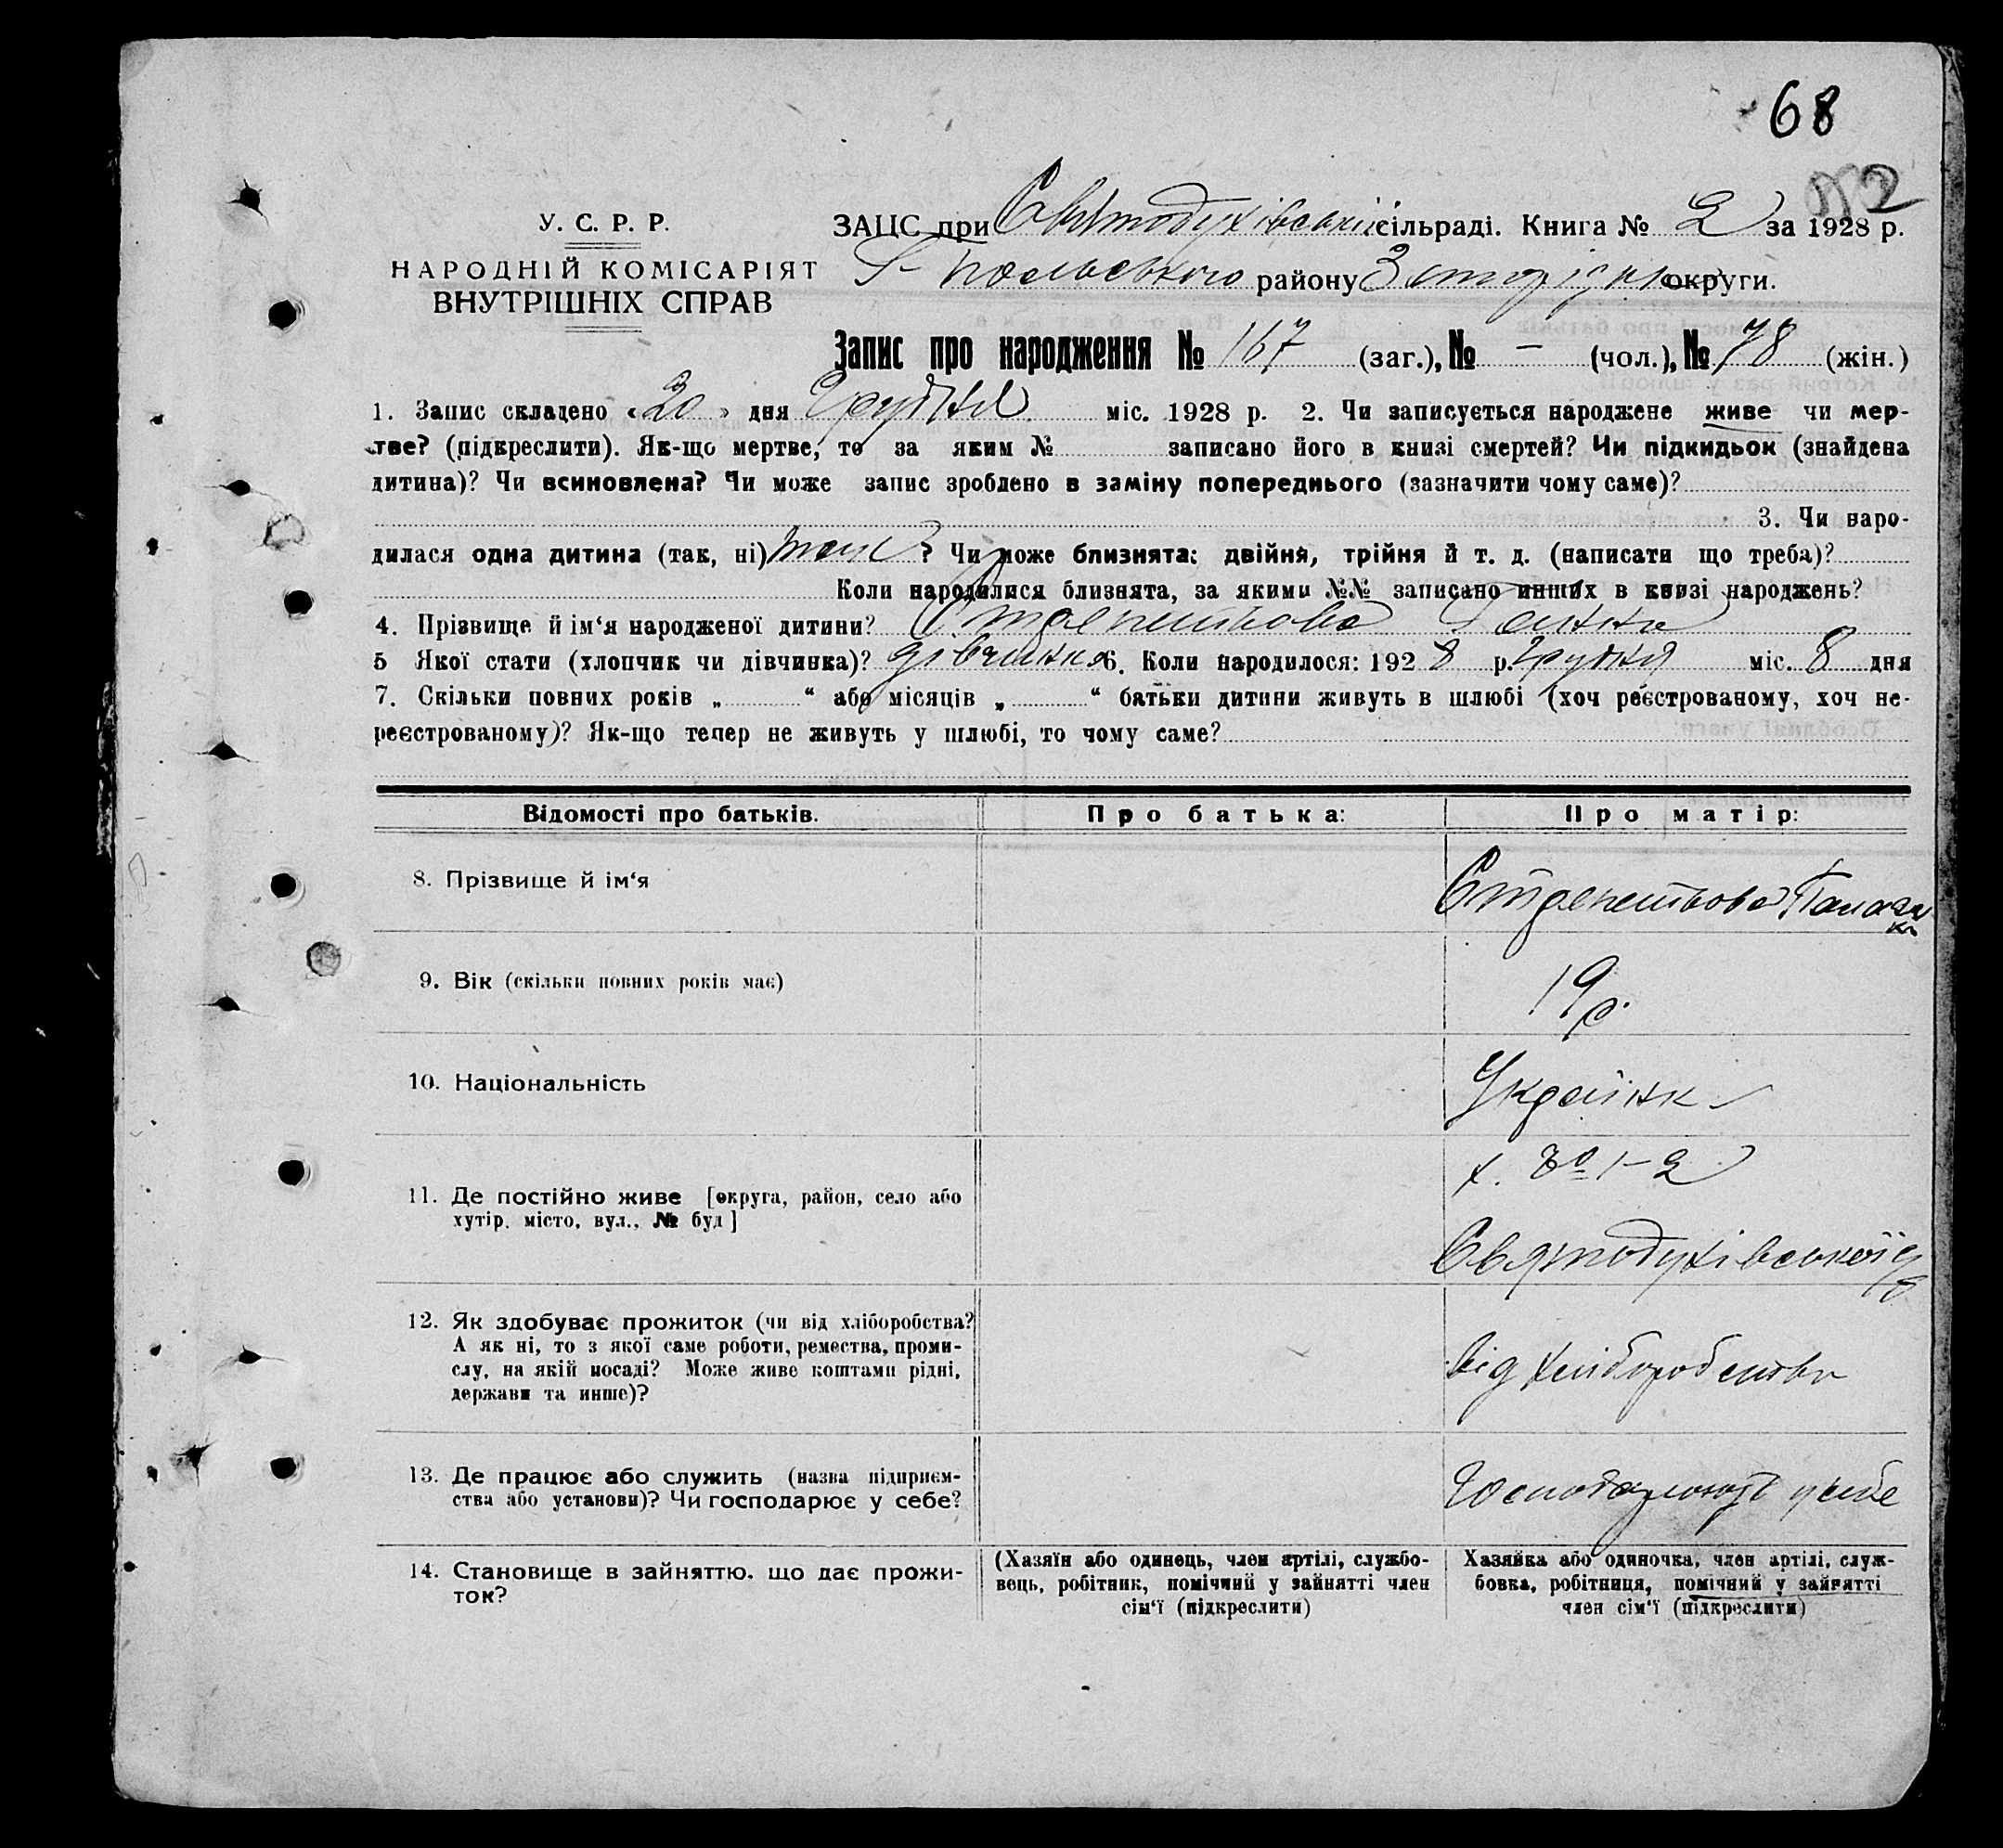 68
№2
У. С. Р. Р.
НАРОДНІЙ КОМІСАРІЯТ
ВНУТРІШНІХ СПРАВ
ЗАЦС при Святодухівській сільраді. Книга № 2 за 1928 р.
Г-польського району Запоріз округи.
Запис про народження № 167 (заг.), № — (чол.), № 78 (жін.)
1. Запис складено «20» дня Грудня міс. 1928 р. 2. Чи записується народжене живе чи мер-
тве? (підкреслити). Як-що мертве, то за яким № записано його в книзі смертей? Чи підкидьок (знайдена
дитина)? Чи всиновлена? Чи може запис зроблено в заміну попереднього (зазначити чому саме)?
3. Чи наро-
дилася одна дитина (так, ні) так? Чи може близнята: двійня, трійня й т. д. (написати що треба)?
Коли народилися близнята, за якими №№ записано инших в книзі народжень?
4. Прізвище й ім‘я народженої дитини? Ганна
5 Якої стати (хлопчик чи дівчинка)? дівчинка 6. Коли народилося: 1928 р. Грудня міс. 8 дня
7. Скільки повних років „ “ або місяців „ “ батьки дитини живуть в шлюбі (хоч реєстрованому, хоч не-
реєстрованому)? Як-що тепер не живуть у шлюбі, то чому саме?
Відомості про батьків.
Про батька:
Про матір:
8. Прізвище й ім‘я
9. Вік (скільки повних років має)
19 р.
10. Національність
Україн к
11. Де постійно живе [округа, район, село або
хутір, місто, вул., № буд]
х. № 1-2
Святодухівської
12. Як здобуває прожиток (чи від хліборобства?
А як ні, то з якої саме роботи, ремества, проми-
слу, на якій посаді? Може живе коштами рідні,
держави та инше)?
від хліборобства
13. Де працює або служить (назва підприєм-
ства або установи)? Чи господарює у себе?
Господарюють у себе
14. Становище в зайняттю, що дає прожи-
ток?
(Хазяїн або одинець, член артілі, службо-
вець, робітник, помічний у зайнятті член
сім‘ї (підкреслити)
Хазяйка або одиночка, член артілі, служ-
бовка, робітниця, помічний у зайнятті
член сім‘ї (підкреслити)